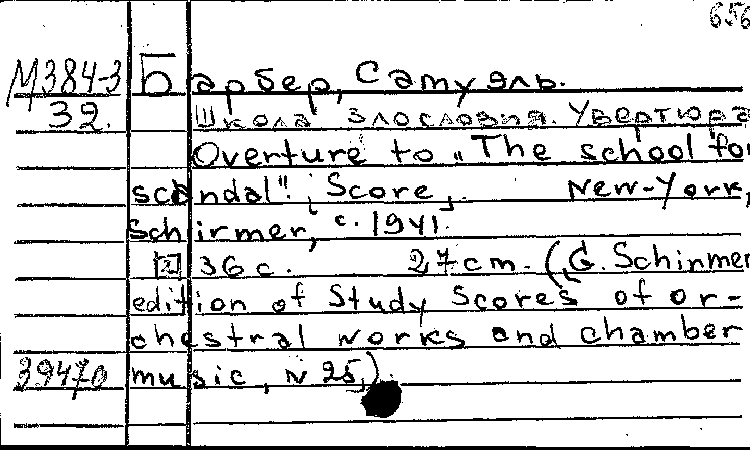 656
М384-3 Барбер, Сатуэль.
32. Школа злословия. Увертюра
Overture to „The school for
scandal". [Score]. New-York,
Schirmer, c. 1941.
[2] 36 c. 27 cm. (G. Schirmer
edition of Study Scores of or-
chestral works and chamber
39470 music, N 25)